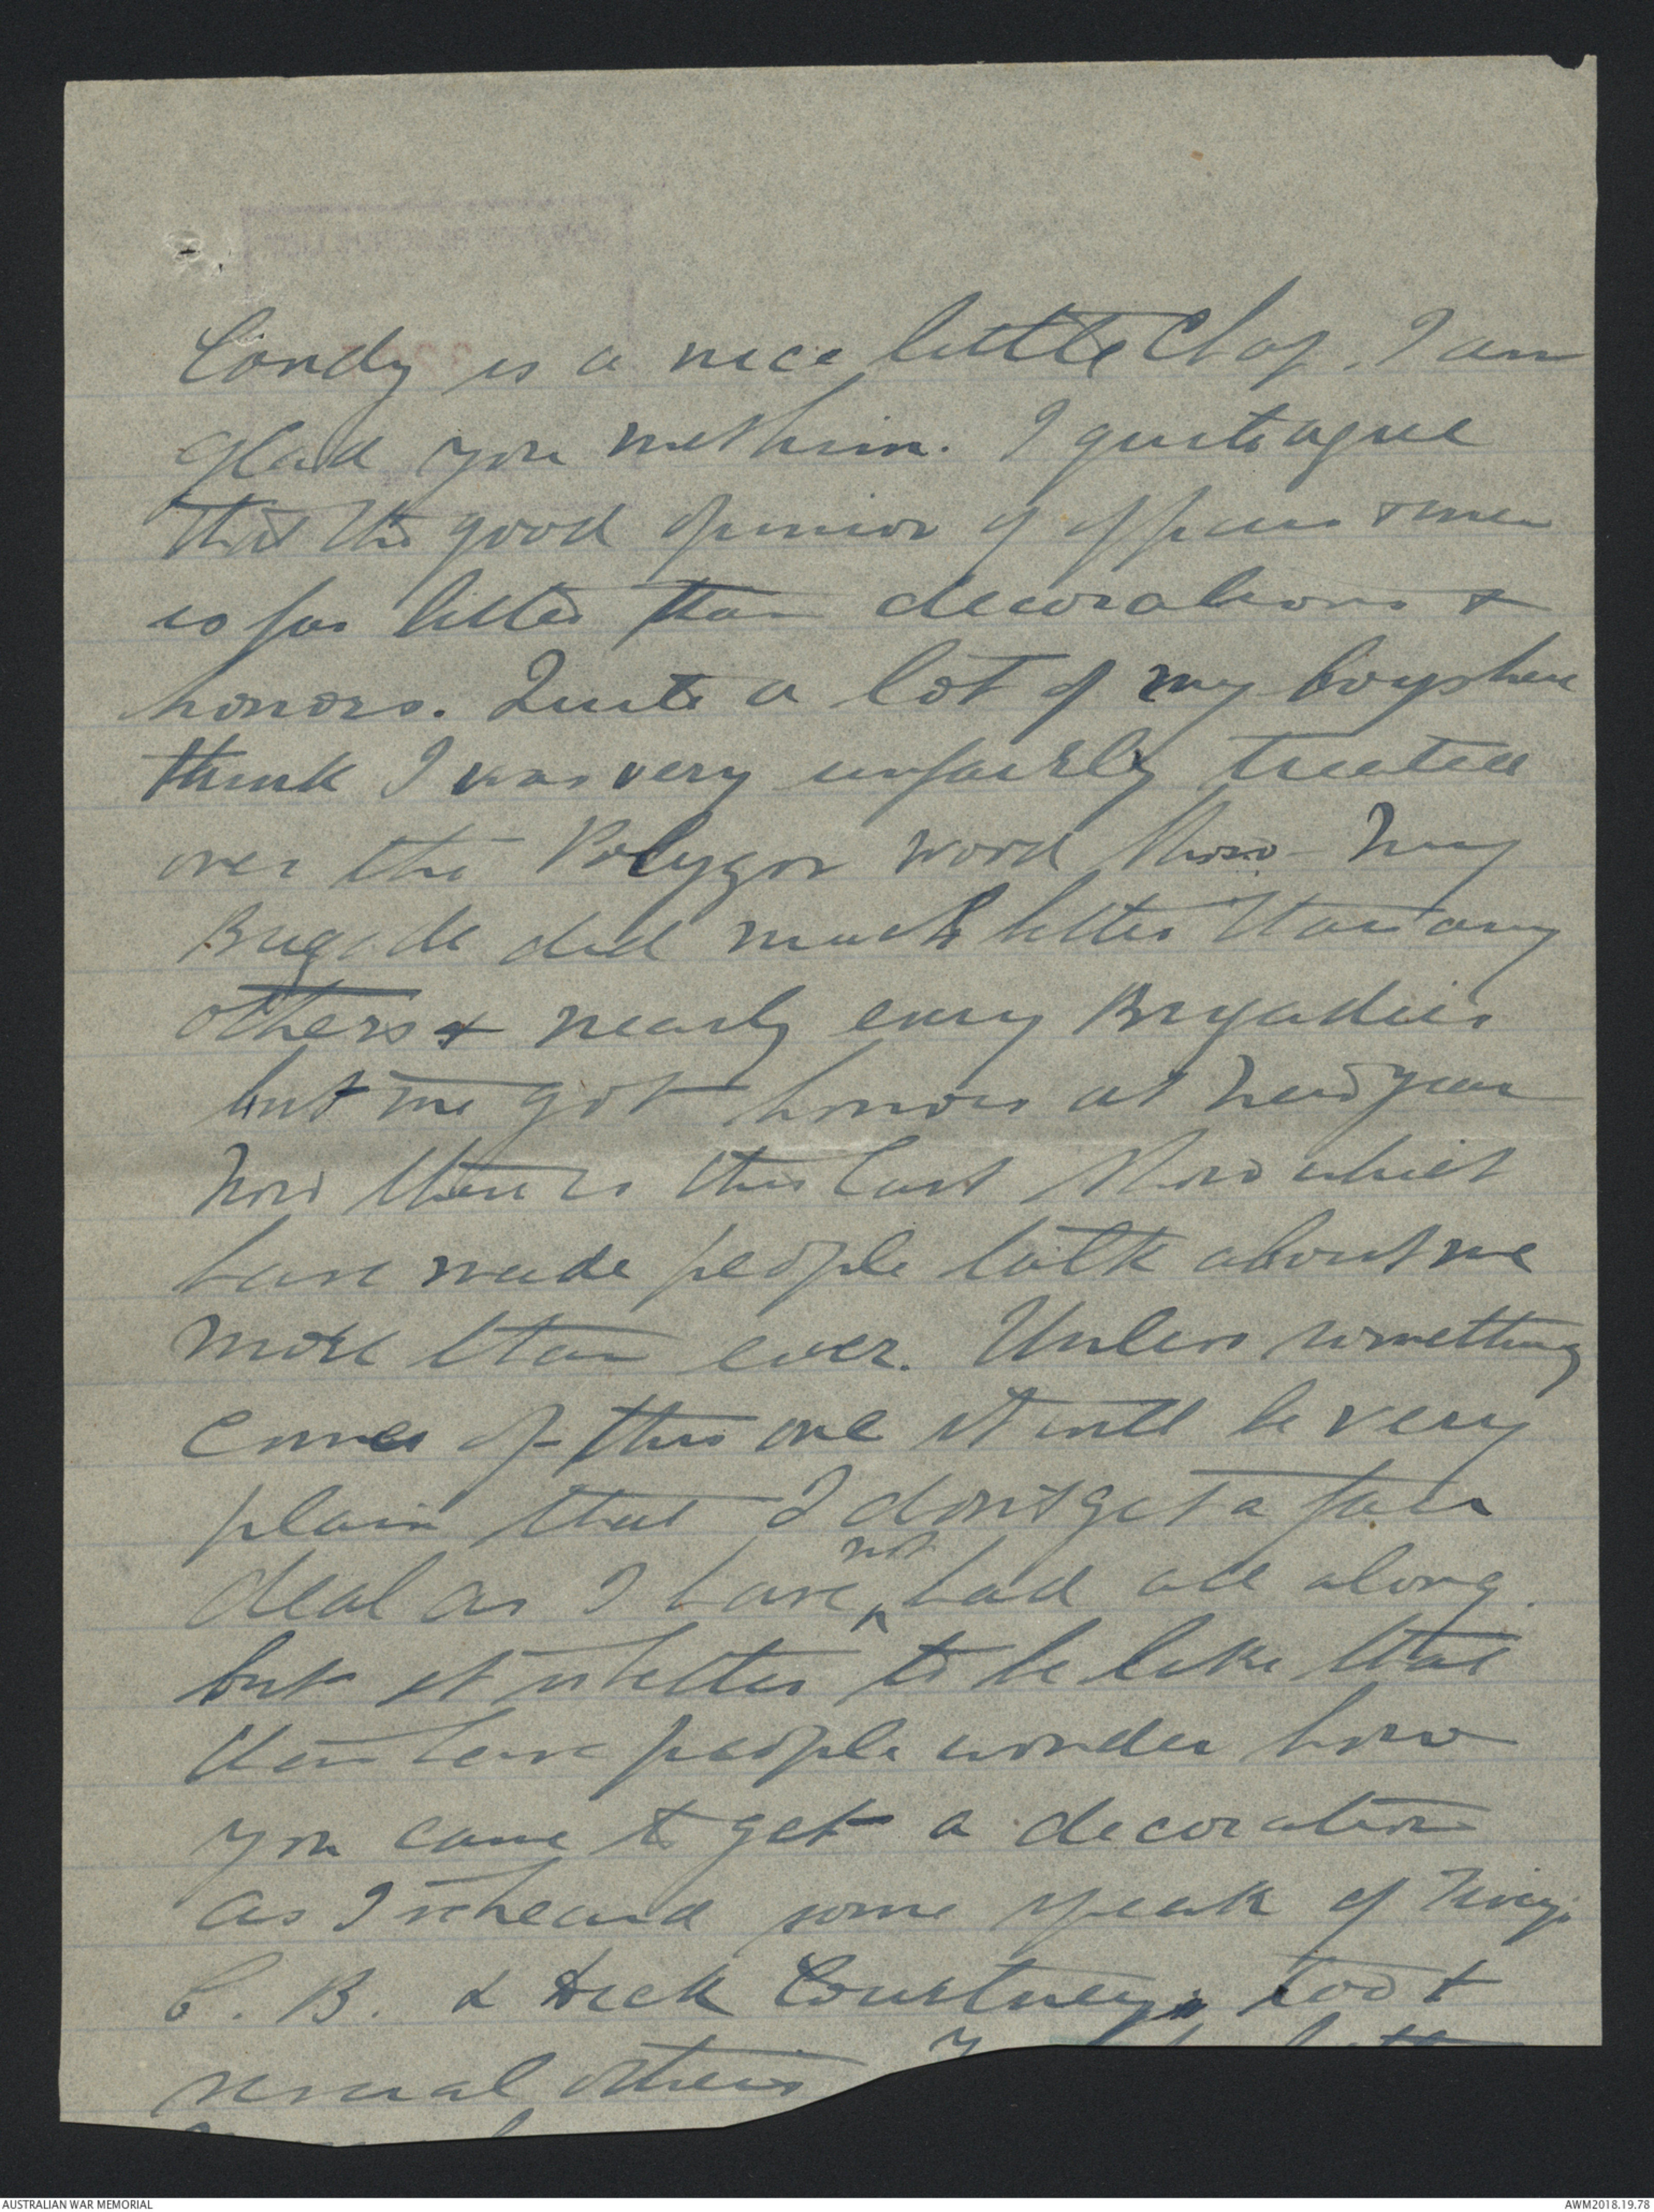 Condy is a nice little Chap. I am
glad you met him. I quite agree
that the good opinion of officers & men
is far better than decorations &
honors. Quite a lot of my boys here
think I was very unfairly treated
over the Polygon wood show - my
Brigade did much better than any
others & nearly every Brigadier
but me got honors at New year
Now there is this last show which
have made people talk about me
more than ever. Unless something
comes of this one it will be very
plain that I don't get a fair
deal as I have not had all along.
but it is better to be like that
than have people wonder how
you came to get a decoration
as I've heard some speak of
C. B. & Dick Courtney's too &
several others
AUSTRALIAN WAR MEMORIAL
AWM2018.19.78